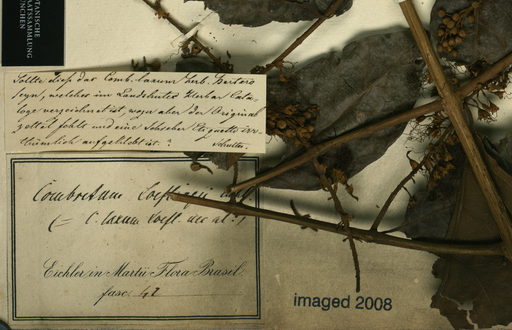 BOTANISCHE
STAATSSAMMLUNG
MÜNCHEN
Sollte dieß das Comb. laxum herb.
seyn, welcher im Landshuter Herbar Cata-
loge verzeichnet ist, wozu aber der Original
zettel fehlt und eine Etiquette irr-
thümlich aufgeklebt ist. ?
Combretum Loeflingii
(= C. laxum Loefl. nec al.)
Eichler in Martii Flora Brasil.
fasc. 42
imaged 2008